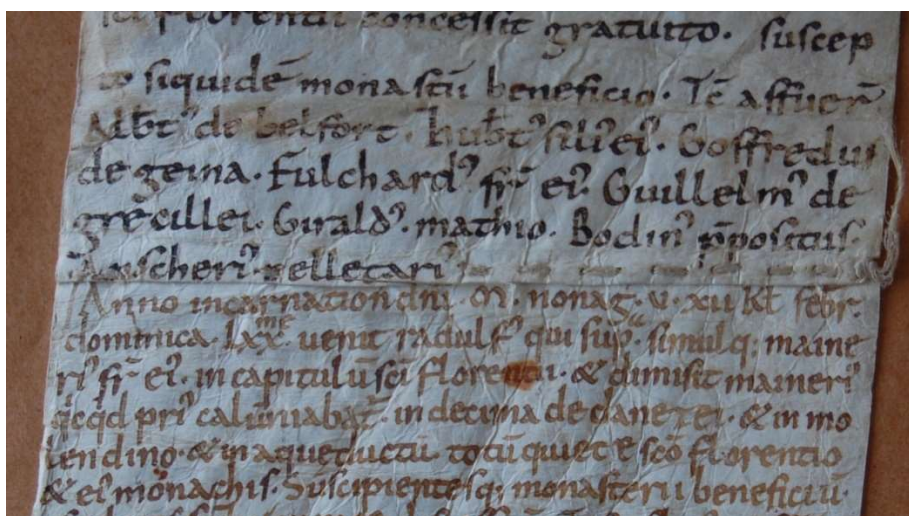 sci florentii concessit gratuito. suscep
to siquidē monastii beneficio. Tc̄ affuer̄
Albt᾽ de belfort. hubt᾽ fili᾽ ei᾽. Goffredus
de geina. Fulchard᾽ fr̄ ei᾽. Guillelm᾽ de
grecillei. Girald᾽. mathio. Bodin᾽ p̄positus.
Anscheri᾽ pelletari᾽
Anno incarnation dn̄i. M. nonag. v. xii kl̄ febr̄.
dominica. lxx me uenit radulf᾽ qui sup̄ simulq; maine
ri᾽ fr̄ ei᾽. in capitulū sc̄i florentii. & dimisit maineri᾽
qcqd pri᾽ calūniabat᾽ in decima de danezei. & in mo
lendino. & in aqueductū. totū quiete sc̄o florentio
& ei᾽ monachis. Suscipientesq; monasterii beneficiū.